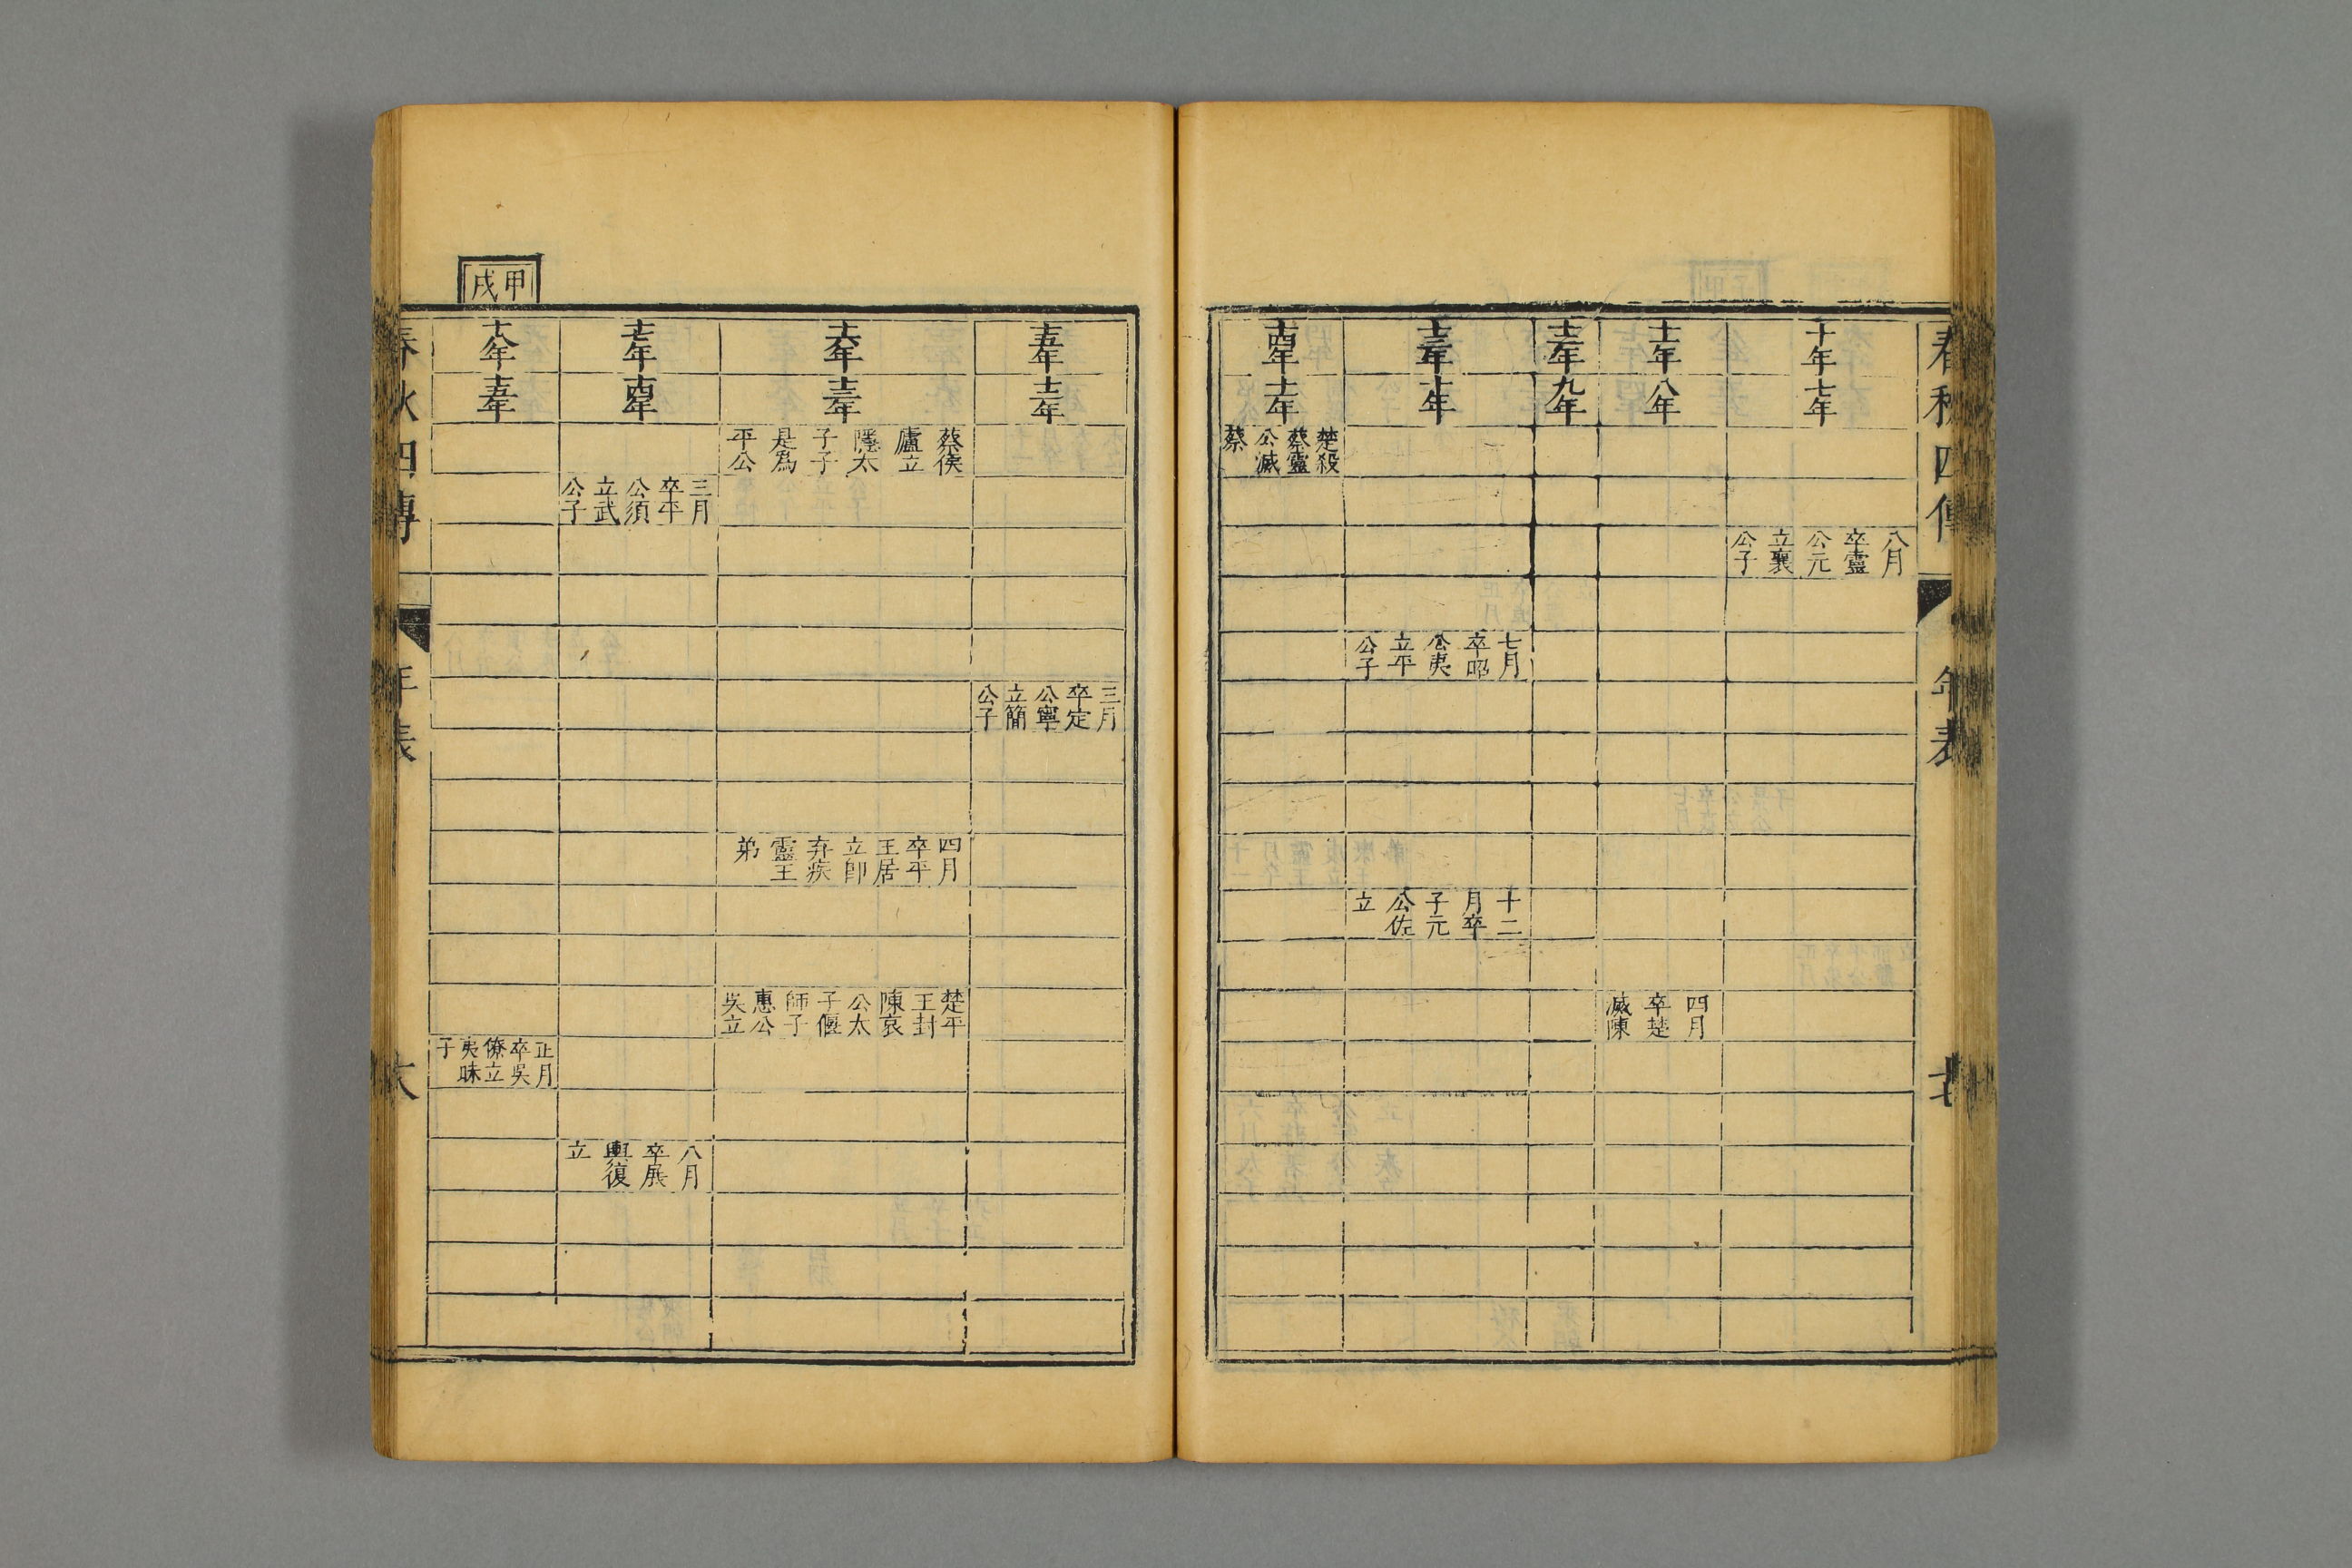 春秋四傳
年表
十年
七年
八月
卒靈
公元
立襄
公子
十一年
八年
四月
卒楚
滅陳
十二年
九年
十三年
十年
七月
卒昭
公夷
立平
公子
十二
月卒
子元
公佐
立
十四年
十一年
楚殺
蔡靈
公滅
蔡
十五年
十二年
三月
卒定
公寧
立簡
公子
十六年
十三年
蔡侯
廬立
隱太
子子
是為
平公
四月
卒平
王居
立即
弃疾
靈王
弟
楚平
王封
陳哀
公太
子偃
師子
惠公
吳立
十七年
十四年
三月
卒平
公須
立武
公子
八月
卒展
輿復
立
甲戌
十八年
十五年
正月
卒吳
僚立
夷昧
子
春秋四傳
年表